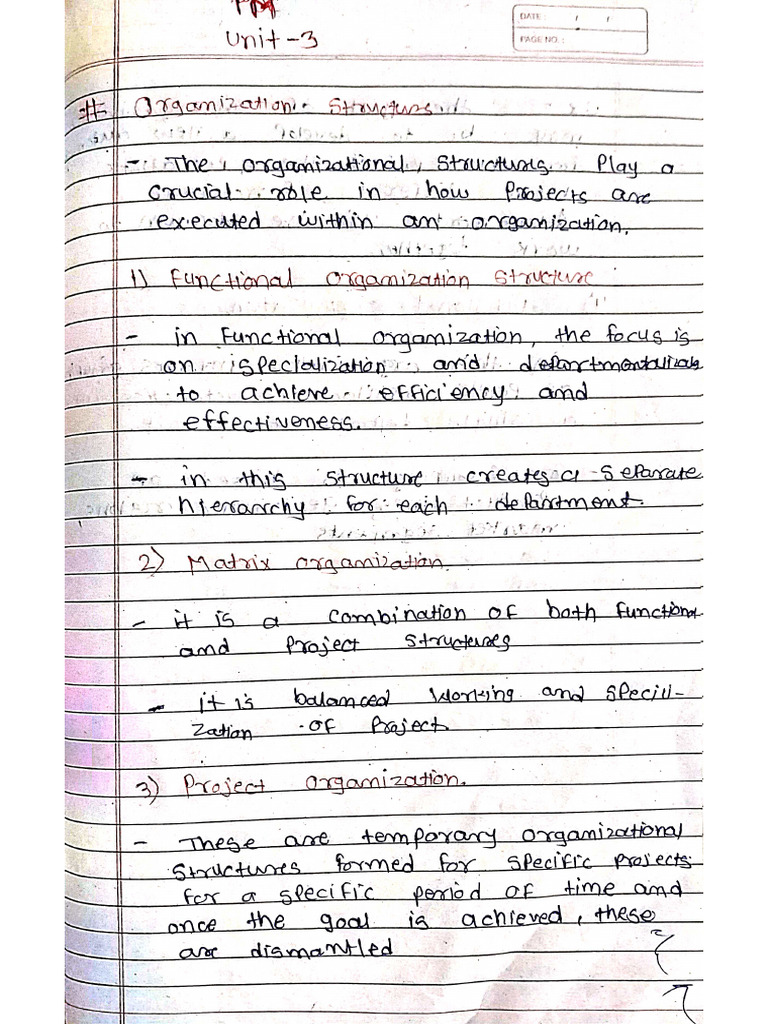 PPM
Unit-3
DATE :    /    /
PAGE NO. :
# Organization. Structurs.
- The organizational structures Play a
crucial role in how Projects are
executed within an organization.
1) Functional organization structure
- in Functional organization, the focus is
on specialization and departmentalizatn
to achieve efficiency and
effectiveness.
- in this structure creates a separate
hierarchy for each department.
2) Matrix organization.
- it is a combination of both functional
and Project structures
- it is balanced working and specili-
zation of Project.
3) Project Organization.
- These are temporary organizational
structures formed for specific projects
for a specific period of time and
once the goal is achieved, these
are dismantled